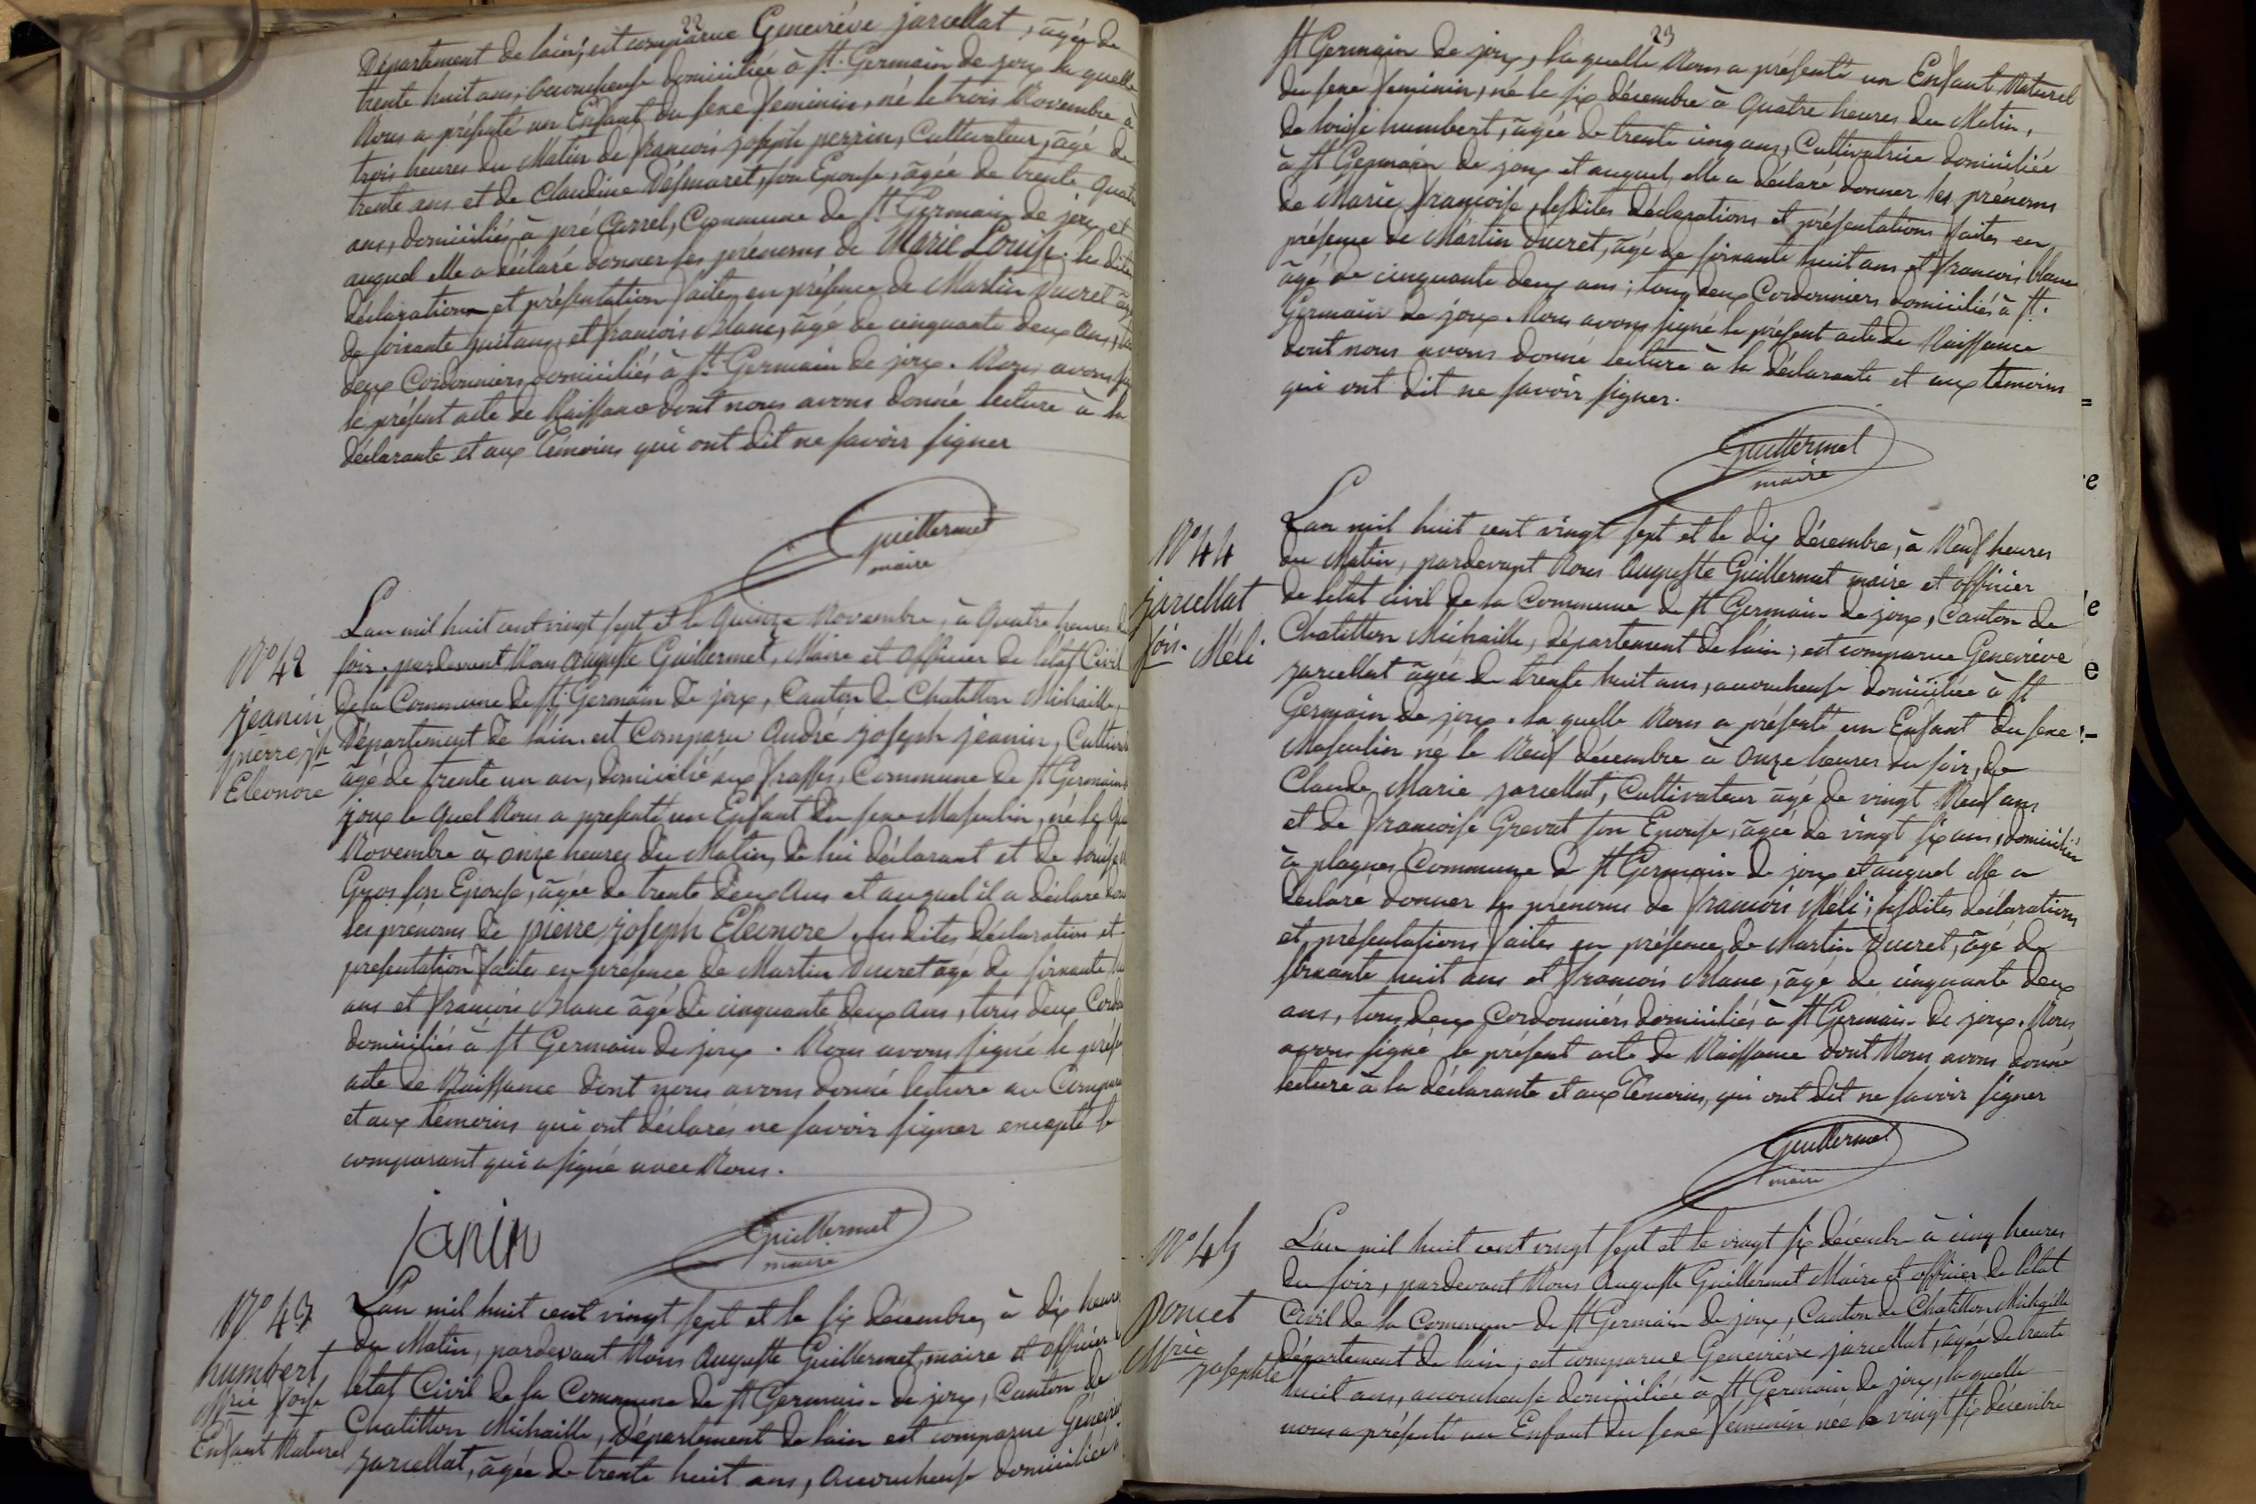 22
Département de lain; est comparue Geneviève jarcellat, âgée de
trente huit ans, accoucheuse domiciliée à St. Germain de joux la quelle
Nous a présenté un Enfant du sexe feminin, né le trois Novembre à
trois heures du Matin de françois joseph perrin, Cultivateur, âgé de
trente ans et de Claudine Désmaret, son Epouse, âgée de trente quatre
ans, domiciliés à pré Carrel, Commune de St. Germain de joux et
auquel elle a déclaré donner les prénoms de Marie Louise. les dites
déclaration et présentation faites en présence de Martin Ducret âgé
de soixante huit ans, et françois Blanc, âgé de cinquante deux ans,
deux Cordonniers domiciliés à St. Germain de joux. Nous avons
le présent acte de Naissance dont nous avons donné lecture à la
déclarante et aux Témoins qui ont dit ne savoir signer
Guillermet
maire
N° 42
jeanin
pierre jph
Eléonore
Lan mil huit cent vingt sept et le Quinze Novembre, à Quatre heures
soir. pardevant Nous Auguste Guillermet, Maire et officier de létat Civil
de la Commune de St. Germain de joux, Canton de Chatillon Michaille,
Département de lain. est Comparu André joseph jeanin,
âgé de trente un an, domicilié aux frasses, Commune de St Germain
joux le Quel Nous a présenté un Enfant du sexe Masculin, né le
Novembre à onze heures du Matin, de lui déclarant et de louise
Gros son Epouse, âgée de trente deux ans et auquel il a déclaré
les prénoms de pierre joseph Eléonore. lesdites déclaration et
présentation faites en présence de Martin Ducret âgé de soixante
ans et françois Blanc âgé de cinquante deux ans, tous deux
domiciliés à St Germain de joux. Nous avons signé le
acte de Naissance dont nous avons donné lecture au
et aux temoins qui ont déclarés ne savoir signer excepté le
comparant qui a signé avec Nous.
janin
Guillermet
maire
N° 43
humbert
Mrie foise
Enfant Naturel
Lan mil huit cent vingt sept et le six décembre, à dix heures
du Matin, pardevant Nous Auguste Guillermet, maire et officier
létat Civil de la Commune de St Germain de joux, Canton de
Chatillon Michaille, Département de lain est comparue
jarcellat, âgée de trente huit ans, accoucheuse domiciliée à
23
St Germain de joux, la quelle Nous a présenté un Enfant Naturel
du sexe feminin, né le six décembre à Quatre heures du Matin,
de louise humbert, âgée de trente cinq ans, Cultivatrice domiciliée
à St Germain de joux et auquel elle a déclaré donner les prénoms
de Marie françoise, lesdites déclarations et présentations faites en
présence de Martin Ducret, âgé de soixante huit ans et françois blanc
âgé de cinquante deux ans; tous deux Cordonniers domiciliés à St.
Germain de joux. Nous avons signé le présent acte de Naissance
dont nous avons donné lecture à la déclarante et aux témoins
qui ont dit ne savoir signer.
Guillermet
maire
N° 44
jarcellat
fois. Méli
Lan mil huit cent vingt sept et le dix décembre, à Neuf heures
du Matin, pardevant Nous Auguste Guillermet maire et officier
de létat civil de la Commune de St Germain de joux, Canton de
Chatillon Michaille, département de lain; est comparue Geneviève
jarcellat âgée de trente huit ans, accoucheuse domiciliée à St
Germain de joux. la quelle Nous a présenté un Enfant du sexe
Masculin né le Neuf décembre à Onze heures du soir, de
Claude Marie jarcellat, Cultivateur âgé de vingt Neuf ans
et de françoise Grevat son Epouse, âgée de vingt six ans, domiciliés
à plagnes Commune de St Germain de joux et auquel elle a
déclaré donner les prénoms de françois Méli; lesdites déclarations
et présentations faites en présence de Martin Ducret, âgé de
soixante huit ans et françois Blanc, âgé de cinquante deux
ans, tous deux Cordonniers domiciliés à St Germain de joux. Nous
avons signé le présent acte de Naissance dont Nous avons donné
lecture à la déclarante et aux Témoins, qui ont dit ne savoir signer
Guillermet
maire
N° 45
poncet
Mrie
josephte
Lan mil huit cent vingt sept et le vingt six décembre à cinq heures
du soir, pardevant Nous Auguste Guillermet Maire et officier de létat
Civil de la Commune de St Germain de joux, Canton de Chatillon Michaille
département de lain; est comparue Geneviève jarcellat, âgée de trente
huit ans, accoucheuse domiciliée à St Germain de joux, la quelle
nous a présenté un Enfant du sexe féminin née le vingt six décembre